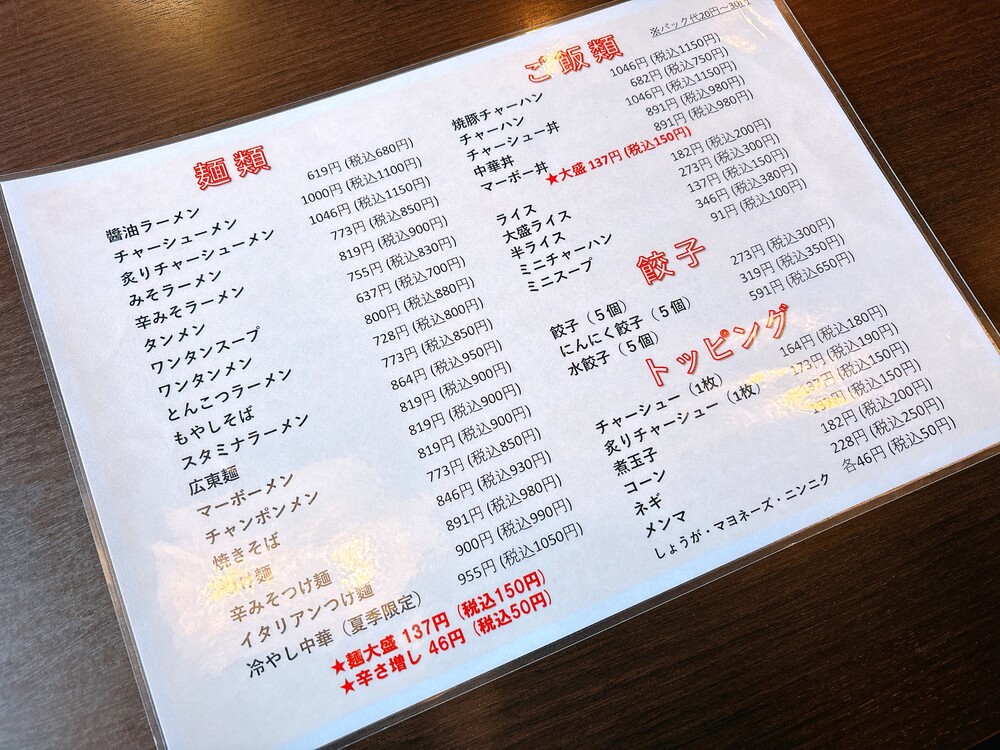 麺類
醬油ラーメン 619円 (税込680円)
チャーシューメン 1000円 (税込1100円)
炙りチャーシューメン 1046円 (税込1150円)
みそラーメン 773円 (税込850円)
辛みそラーメン 819円 (税込900円)
タンメン 755円 (税込830円)
ワンタンスープ 637円 (税込700円)
ワンタンメン 800円 (税込880円)
とんこつラーメン 728円 (税込800円)
もやしそば 773円 (税込850円)
スタミナラーメン 864円 (税込950円)
広東麺 819円 (税込900円)
マーボーメン 819円 (税込900円)
チャンポンメン 819円 (税込900円)
焼きそば 773円 (税込850円)
つけ麺 846円 (税込930円)
辛みそつけ麺 891円 (税込980円)
イタリアンつけ麺 900円 (税込990円)
冷やし中華（夏季限定） 955円 (税込1050円)
★麺大盛 137円（税込150円）
★辛さ増し 46円（税込50円）
※パック代20円～30円
ご飯類
焼豚チャーハン 1046円 (税込1150円)
チャーハン 682円 (税込750円)
チャーシュー丼 1046円 (税込1150円)
中華丼 891円 (税込980円)
マーボー丼 891円 (税込980円)
★大盛 137円 (税込150円)
ライス 182円 (税込200円)
大盛ライス 273円 (税込300円)
半ライス 137円 (税込150円)
ミニチャーハン 346円 (税込380円)
ミニスープ 91円 (税込100円)
餃子
餃子（５個） 273円 (税込300円)
にんにく餃子（５個） 319円 (税込350円)
水餃子（５個） 591円 (税込650円)
トッピング
チャーシュー（1枚） 164円 (税込180円)
炙りチャーシュー（1枚） 173円 (税込190円)
煮玉子 137円 (税込150円)
コーン 137円 (税込150円)
ネギ 182円 (税込200円)
メンマ 228円 (税込250円)
しょうが・マヨネーズ・ニンニク 各46円 (税込50円)